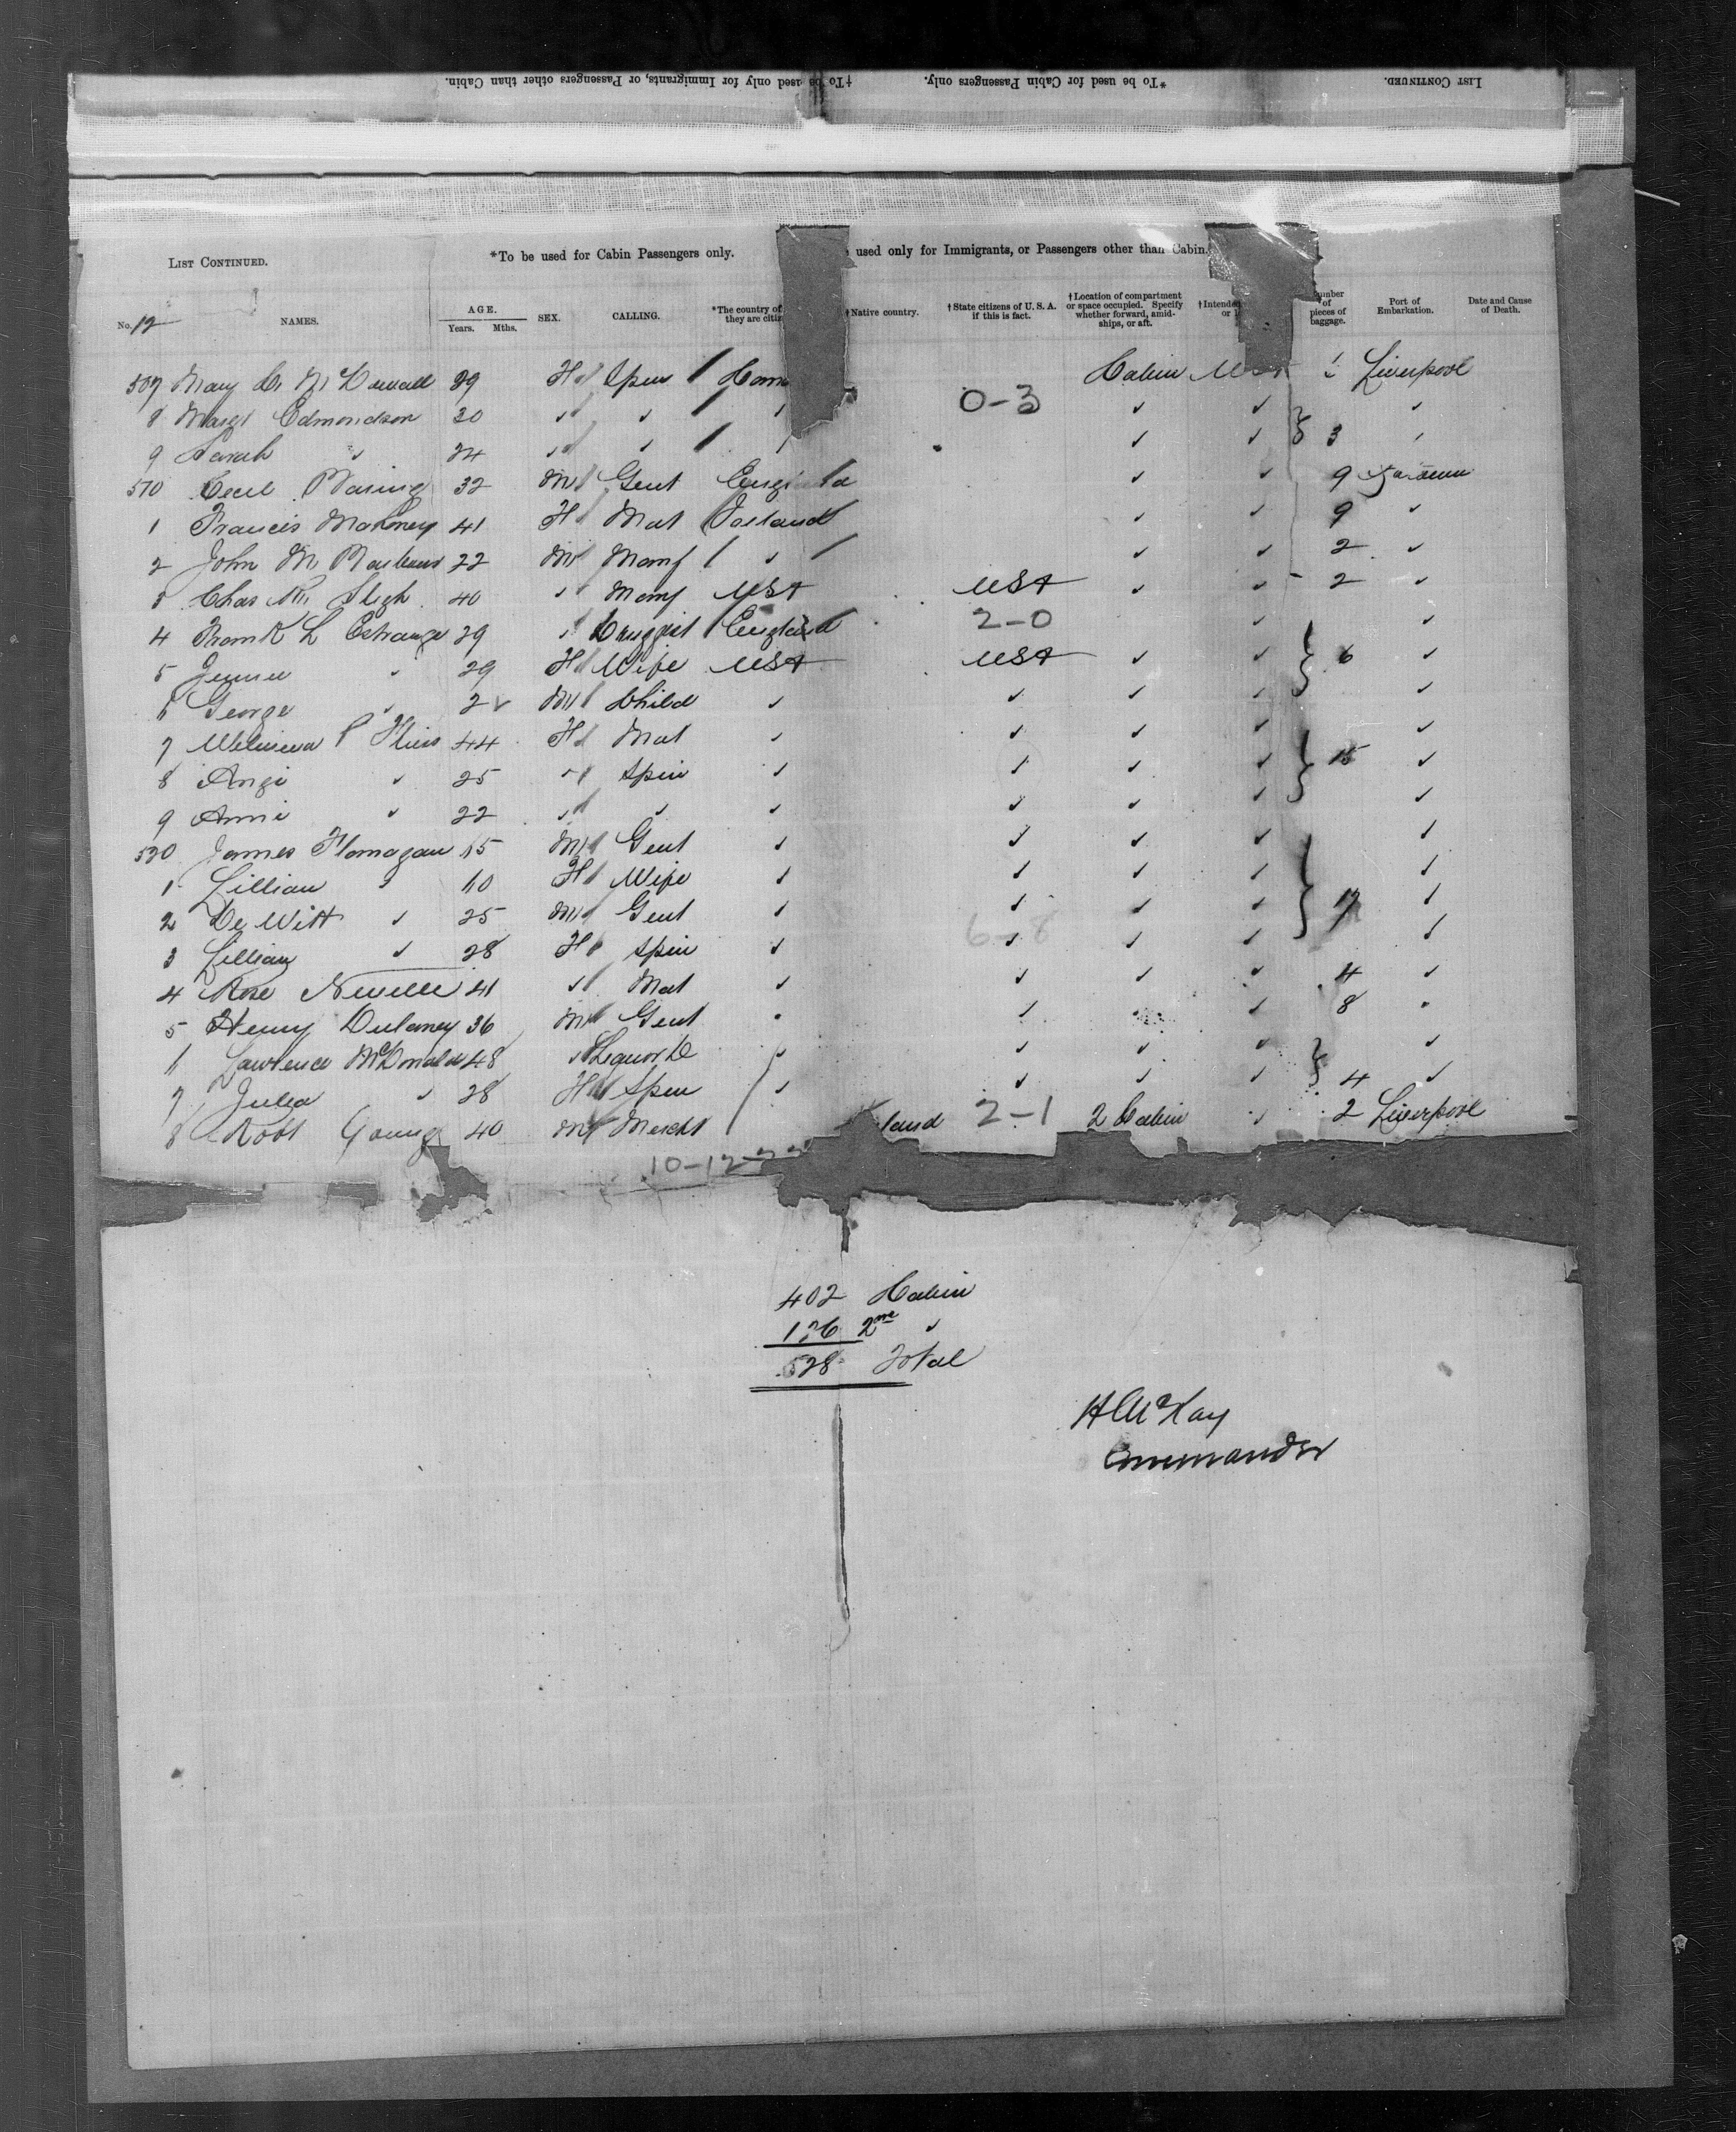 †To be used only for Immigrants, or Passengers other than Cabin. *To be used for Cabin Passengers only. LIST CONTINUED.
LIST CONTINUED. *To be used for Cabin Passengers only. used only for Immigrants, or Passengers other than Cabin.
No. 12 NAMES. AGE. Years. Mths. SEX. CALLING. *The country of they are citiz †Native country. †State citizens of U. S. A. if this is fact. †Location of compartment or space occupied. Specify whether forward, amidships, or aft. †Intended or umber of pieces of baggage. Port of Embarkation. Date and Cause of Death.
507 Mary 39 Spin Cabin Liverpool
0-3
8 Margt Edmondson 30 ✓ ✓ ✓ ✓ ✓
9 Sarah ✓ 24 ✓ ✓ ✓ ✓ 3
510 Cecil Baring 32 M Gent England ✓ ✓ 9
1 Francis Mahoney 41 Mat Ireland ✓ ✓ 9 ✓
2 John M 22 M Manf ✓ ✓ ✓ 2 ✓
3 Chas Sligh 40 ✓ Manf USA USA ✓ ✓ 2 ✓
4 Frank L Estrange 29 ✓ Druggist England 2-0 ✓ ✓
5 ✓ 29 Wife USA USA ✓ ✓ 6 ✓
6 George ✓ 2 M Child ✓ ✓ ✓ ✓ ✓
7 44 Mat ✓ ✓ ✓ ✓ ✓
8 Angi ✓ 25 ✓ Spin ✓ ✓ ✓ ✓ 15 ✓
9 Anni ✓ 22 ✓ ✓ ✓ ✓ ✓ ✓ ✓
520 James Flanagan M Gent ✓ ✓ ✓ ✓ ✓
1 Lillian ✓ Wife ✓ ✓ ✓ ✓ ✓
2 De Witt ✓ 25 M Gent ✓ ✓ ✓ ✓ ✓
6-8
3 Lillian ✓ 28 Spin ✓ ✓ ✓ ✓ ✓
4 Rose Neville 41 ✓ Mat ✓ ✓ ✓ ✓ 4 ✓
5 Henry Dulaney 36 M Gent ✓ ✓ ✓ 8
6 Lawrence McDonald 48 ✓ ✓ ✓ ✓ ✓ ✓
7 Julia ✓ 28 Spin ✓ ✓ ✓ ✓ 4 ✓
8 Robt Young 40 M Mercht land 2-1 2 Cabin ✓ 2 Liverpool
10-12-
402 Cabin
126 2nd ✓
528 Total
H McKay
Commander